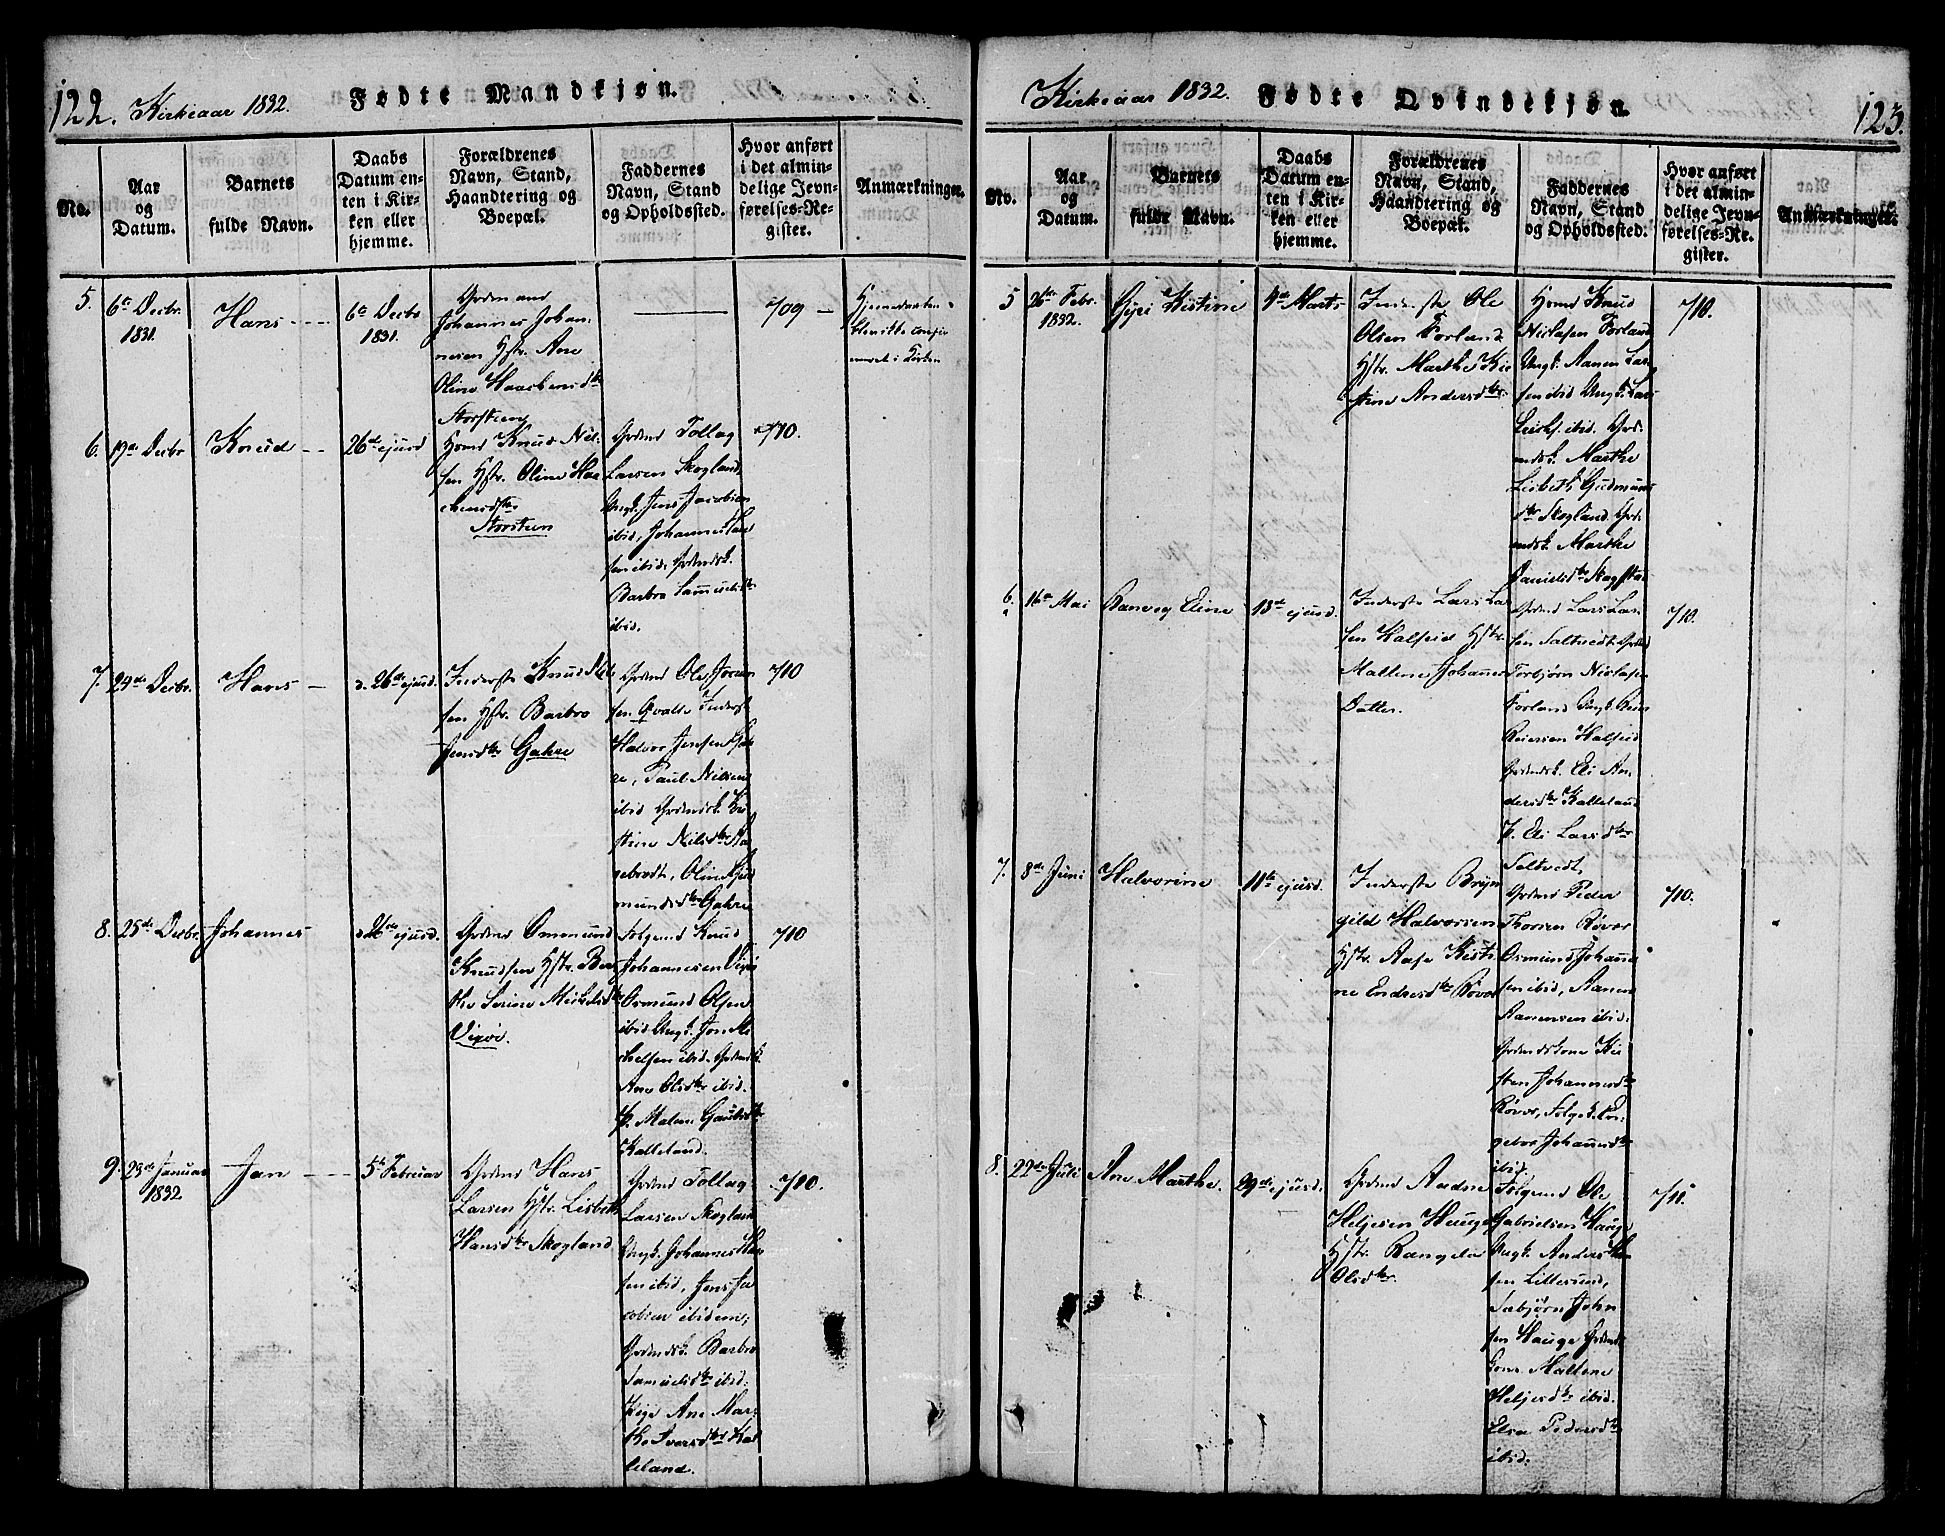 122. Kirkeaar 1832. Fødte Mandkjøn.
No.
Aar
og
Datum.
Barnets
fulde Navn.
Daabs
Datum en-
ten i Kir-
ken eller
hjemme.
Forældrenes
Navn, Stand,
Haandtering og
Boepæl.
Faddernes
Navn, Stand
og Opholdssted.
Hvor anført
i det almin-
delige Jevn-
førelses-Re-
gister.
Anmærkninger.
5.
6te Decbr.
1831.
Hans
6te Decbr
1831.
Grdmand
Johannes Johan-
nesen Hstr. Ane
Oline Haachensdtr
Storsteen
709
Hjemmedøbt
6.
19de Decbr
Knud
26de ejusd
Hsmd Knud Niel-
sen Hstr. Oline Haa-
chensdtr
Storsteen
Grdmd Tollag
Larsen Skogland,
Ungk. Jens Jacobsen
ibid, Johannes Han-
sen ibid. Grdmdsk.
Barbro Samuelsdtr
ibid.
710.
7.
24de Decbr.
Hans
d. 26de ejusd.
Inderste Knud Niel-
sen Hstr. Barbro
Jensdtr Gahre
Grdmd Ole
sen Qvalle Inderst
Halvor Jensen Gah-
re, Paul Nilsen
ibid Grdmdsk. Ki-
stine Nilsdtr
Oline Gud-
mundsdtr Gahre
710
8.
25de Decbr.
Johannes
d. 26de ejusd.
Grdmd Ommund
Knudsen Hstr. Ber-
the Serine Mickelsdtr
Vixøe.
Folgemd Knud
Johannesen Vixøe
Osmund Olsen
ibid Ungk. Jon Mi-
chelsen ibid. Grdmdsk.
Ane Olsdtr ibid.
P. Malene Gautesdtr
Kalleland.
710
9.
23de Januar
1832
Jan
5te Februar
Grdmd Hans
Larsen Hstr. Lisbeth
Hansdtr Skogland
Grdmd Tollag
Larsen Skogland
Ungk. Johannes Han-
sen ibid, Jens Ja-
cobsen ibidem,
Grdmdsk. Barbro
Samuelsdtr ibid.
Pige Ane Mar-
the Iversdtr Kal-
leland.
710.
Kirkeaar 1832. Fødte Qvindekjøn. 123.
No.
Aar
og
Datum.
Barnets
fulde Navn.
Daabs
Datum en-
ten i Kir-
ken eller
hjemme.
Forældrenes
Navn, Stand,
Haandtering og
Boepæl.
Faddernes
Navn, Stand
og Opholdssted.
Hvor anført
i det almin-
delige Jevn-
førelses-Re-
gister.
Anmærkninger.
5
26de Febr.
1832.
Kistine
4de Marts
Inderste Ole
Olsen Forland
Hstr. Marthe Ki-
stine Andersdtr.
Hsmd Knud
Niclasen Forland
Ungk. Aanen Lar-
sen ibid Ungk. Lars
ibid. Grd-
mdsk. Marthe
Lisbeth Gudmunds-
dtr Skogland. Grd-
mdsk. Marthe
Danielsdtr
710.
6.
16de Mai
Ranveg Eline
13de ejusd.
Inderste Lars Lar-
sen Halseid Hstr.
Mallene Johannes
Datter.
Grdmd Lars Lar-
sen Saltvedt, Grdmd
Torbjørn Niclasen
Forland Ungk. Reier
Reiersen Halseid
Grdmdsk. Eli An-
dersdtr Kalleland
P. Eli Larsdtr
Saltvedt,
710.
7.
8de Juni
Halvorine
11te ejusd.
Inderste Bryn-
gild Halvorsen
Hstr. Aase Kisti-
ne Endresdtr Røvær
Grdmd Peder
Thorsen Røvær
Osmund Johanne-
sen ibid, Aanen
Aanensen ibid.
Grdmdskone Ki-
sten Johannesdtr
Røvær, Folgek. In-
gebor Johannesdtr
ibid.
710.
8.
22de Juli
Ane Marthe.
29de ejusd.
Grdmd Andne
Heljesen Hauge
Hstr. Rangela
Olsdtr.
Folgemd Ole
Gabrielsen Hauge
Ungk. Anders
sen Littesund,
Sæbjørn John-
sen Hauge Grdmds
Kone Mallene
Heljesdtr ibid.
Elsa Pedersdtr
ibid.
711.